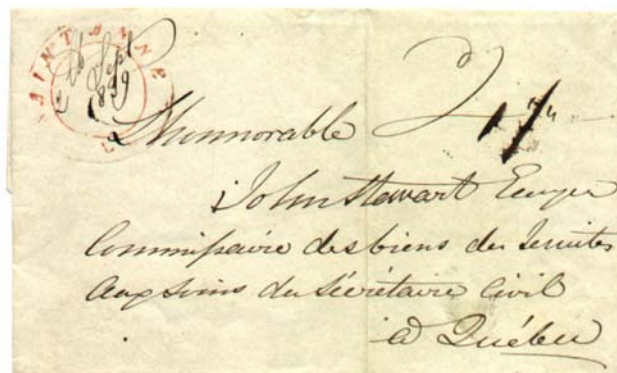 SAINT ANNE
26 Sept
1839
L'Honnorable
John Stewart Ecuyer
Commissaire des biens des Jesuites
Aux soins du Sécrétaire Civil
à Québec